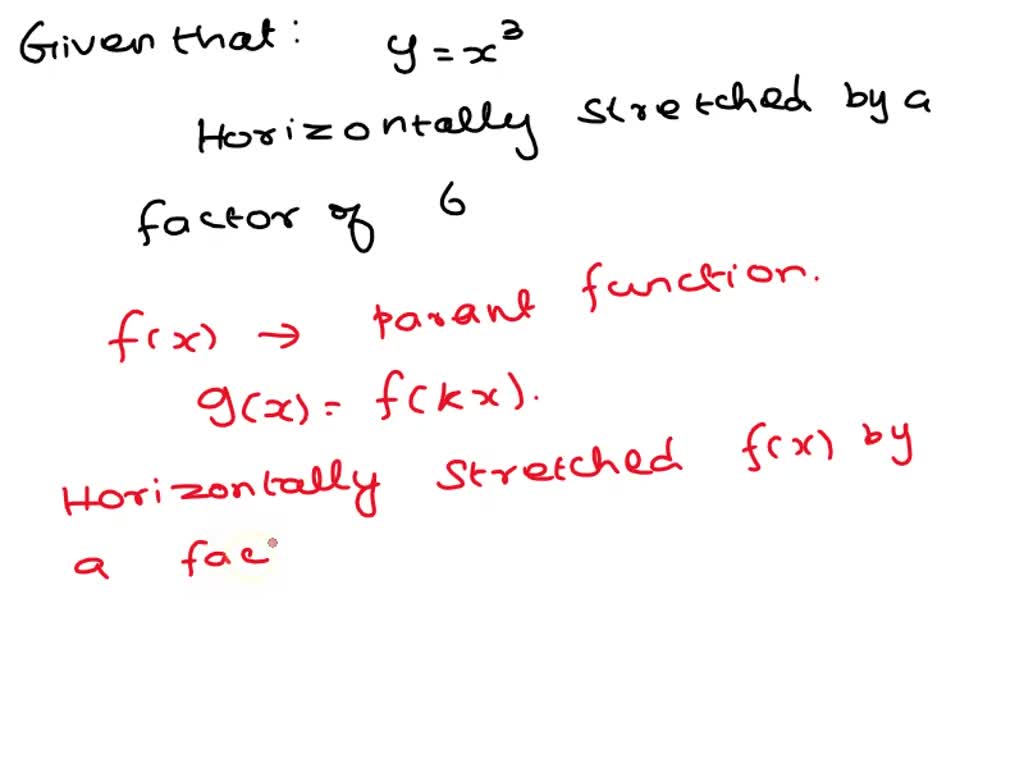 Given that: y = x³
Horizontally stretched by a
factor of 6
f(x) → parant function.
g(x) = f(kx).
Horizontally stretched f(x) by
a fac